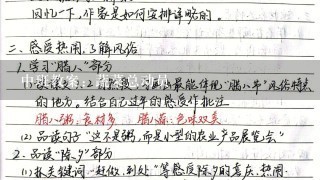 回忆一下,作家是如何安排详略的。
二、感受热闹,了解风俗
1.学习“腊八”部分
中班教案:蔬菜总动员
最能体现“腊八节”风俗特点
的地方。结合自己过年的感受作批注
腊八粥:食材多 腊八蒜:色味双美
(2)品读句子“这不是粥,而是小型的农业产品展览会”
2.品读“除夕”部分
(1)抓关键词“赶做、到处”等感受除夕的喜庆、热闹